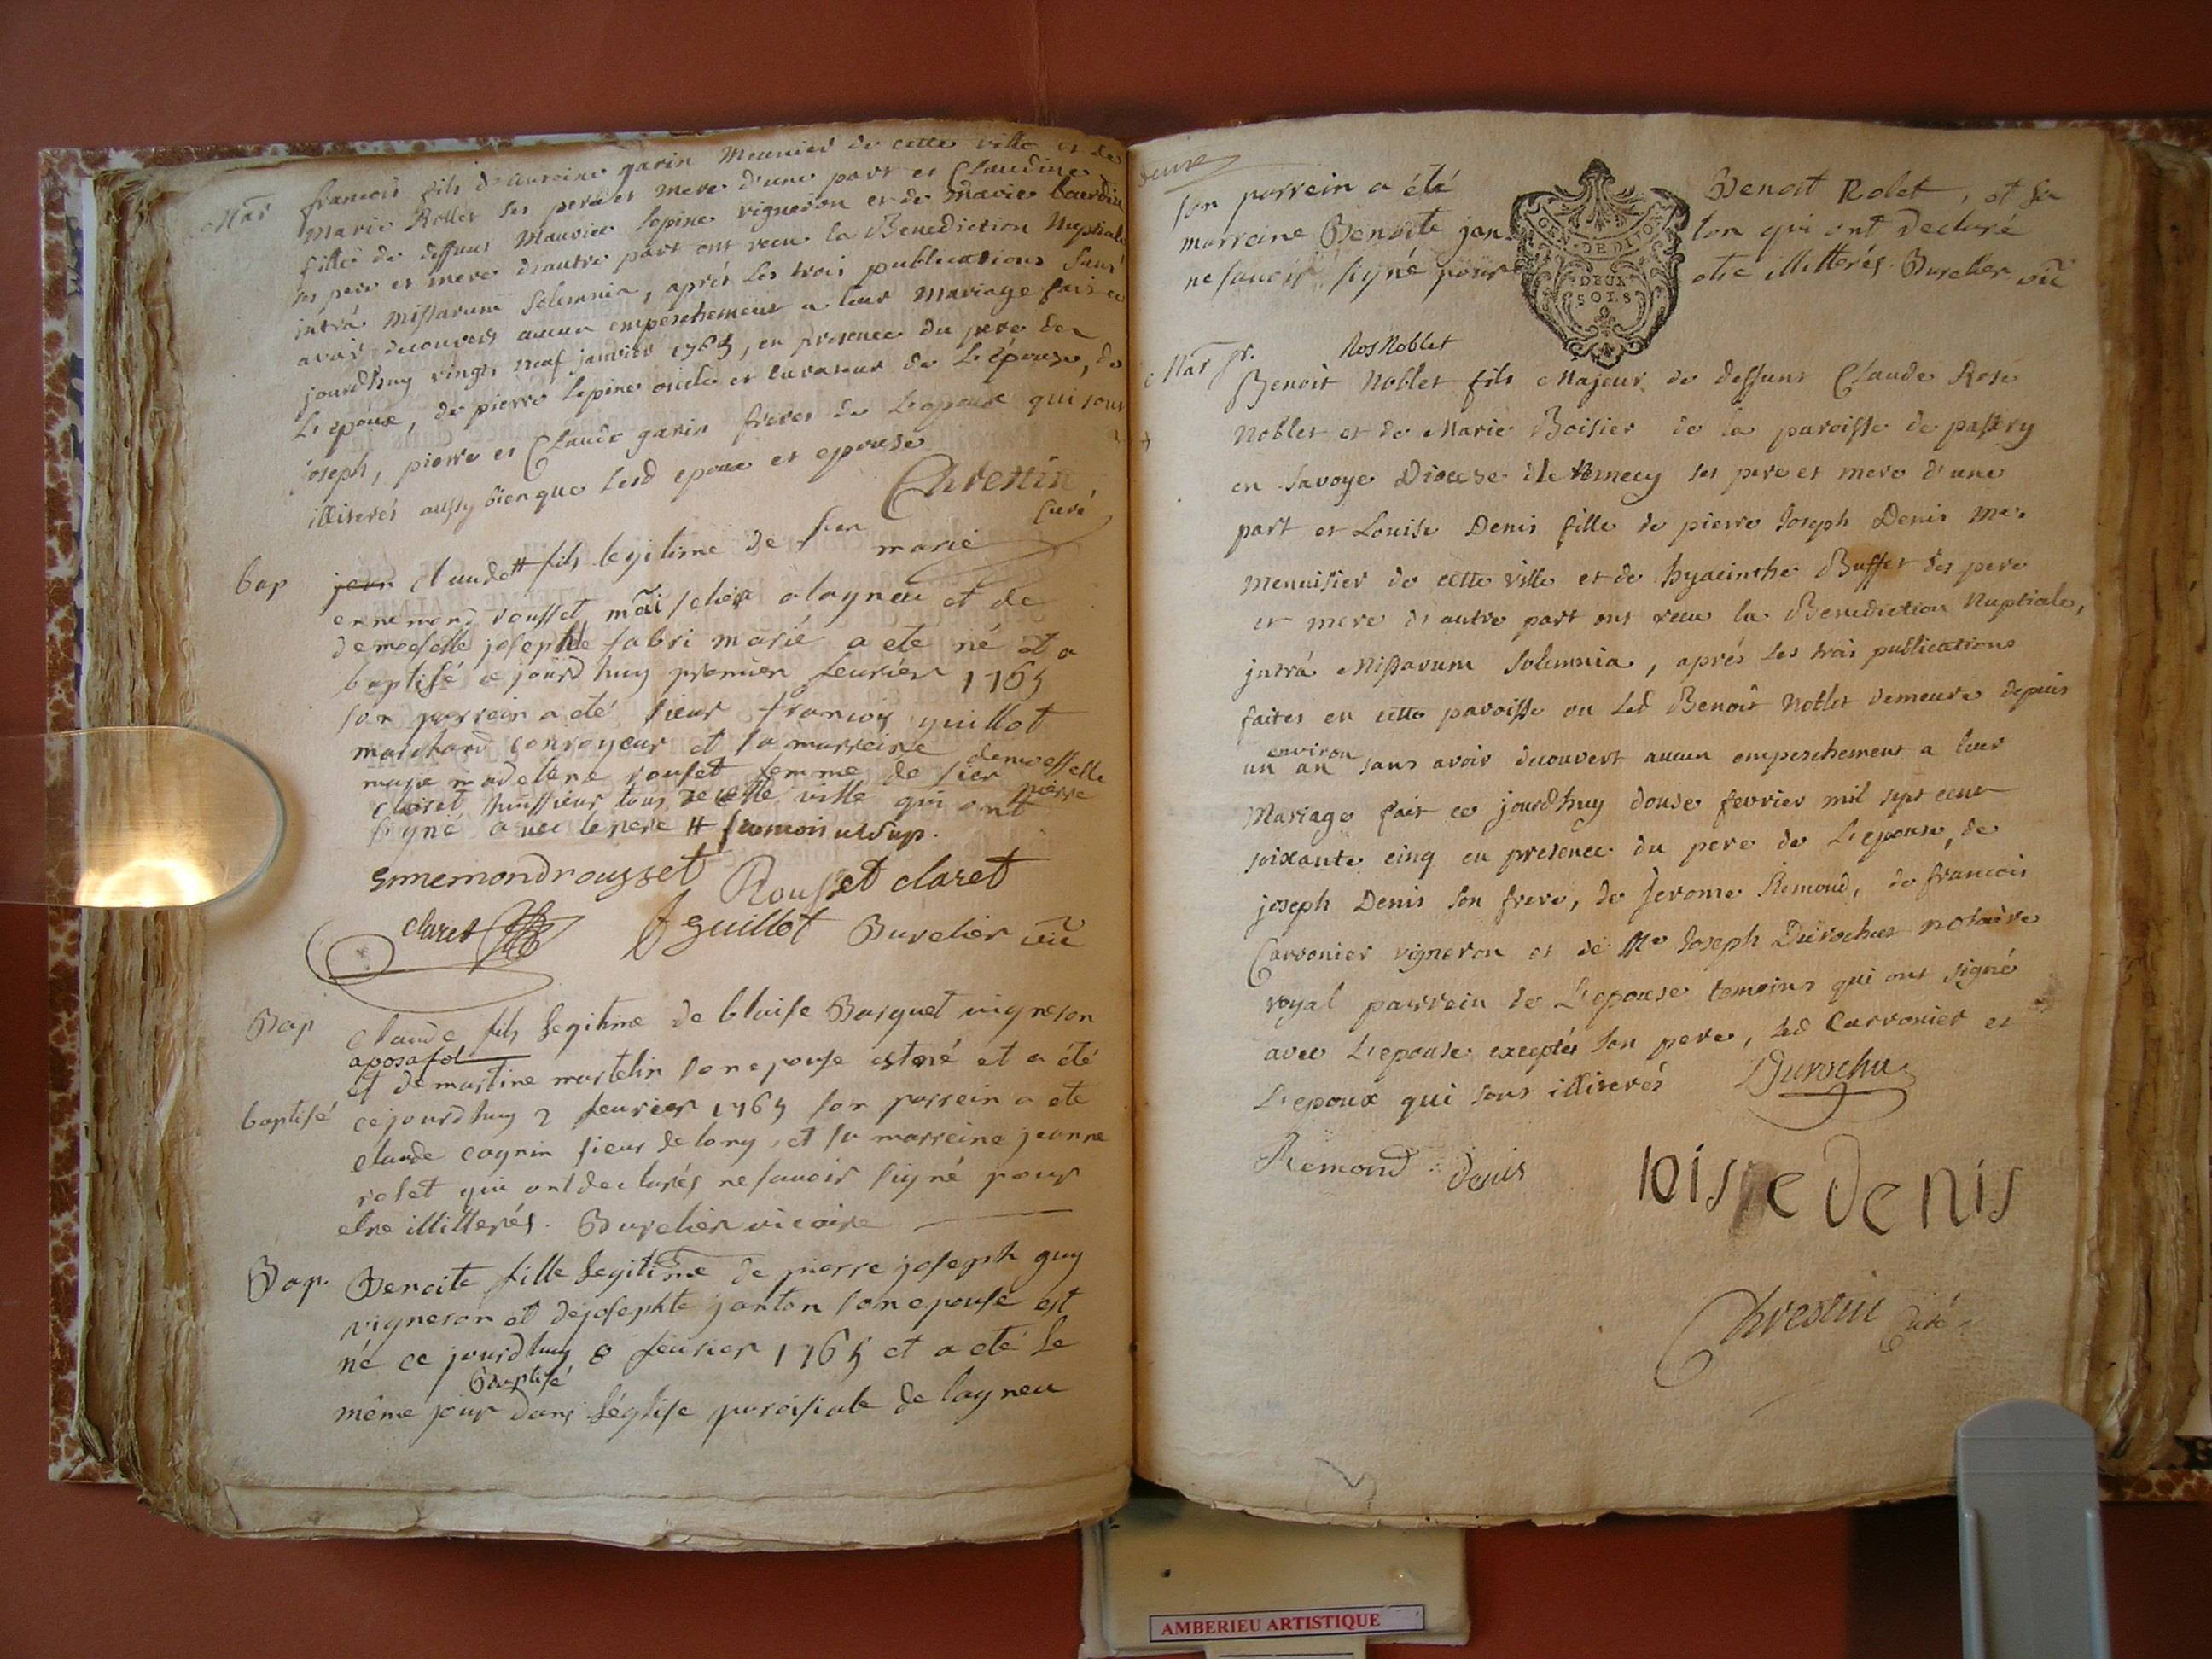 Mar francois fils d'antoine garin Meunier de cette ville et de
marie Rollet ses pere et mere d'une part et Claudine
fille de deffunt Maurice Lepine vigneron et de Marie
ses pere et mere d'autre part ont recu la Benediction Nuptiale
intrá missarum Solemnia, aprés les trois publications sans
avoir decouvert aucun empeschement a leur Mariage fait ce
jourdhuy vingt neuf janvier 1765, en presence du pere de
L'epoux, de pierre Lepine oncle et curateur de L'épouse, de
joseph, pierre et Claude garin freres de L'epoux qui sont
illiterés aussy bien que Lesd epoux et epouse
Chrestin
Curé
bap jean claude # fils legitime de sieur marie
ennemond rousset maî a lagneu et de
demoiselle josephte fabri marié a ete né et a
baptisé ce jourd huy premier feurier 1765
son parrein a eté sieur francois guillot
marchand conroyeur et sa marreine demoesselle
marie madelene rouset femme de sier pierre
claret huissieur tous de cette ville qui ont
signé avec le pere #
Ennemondrousset Rousset claret
claret f guillot Burelier vic
Bap claude fils legitime de blaise Barquet vigneron
aposafol
et de martine martelin son epouse est né et a été
baptisé ce jourd huy 2 feurier 1765 son parrein a ete
claude cognin sieur de lony et sa marreine jeanne
rolet qui ont declarés ne sauoir signé pour
etre illitterés. Burelier vicaire
Bap. Benoite fille legitime de pierre joseph guy
vigneron et de josephte janton son epouse est
né ce jourd huy 8 feurier 1765 et a eté le
baptisé
même jour dans l'église paroisiale de lagneu
son parrein a été Benoit Rolet, et sa
marreine Benoite janton qui ont declaré
ne sauoir signé pour etre illitterés. Burelier vic
GEN. DE DIJON
DEUX
SOLS
Ros Noblet
Mar pr. Benoit Noblet fils Majeur de deffunt Claude Rose
Noblet et de Marie Boisier de la paroisse de
en Savoye Diocese de Annecy ses pere et mere d'une
part et Louise Denis fille de pierre Joseph Denis me.
menuisier de cette ville et de hyacinthe Buffet ses pere
et mere d'autre part ont recu la Benediction Nuptiale,
jntrá Missarum Solemnia, aprés Les trois publications
faites en cette paroisse ou Led Benoit Noblet demeure depuis
environ
un an sans avoir decouvert aucun empeschement a leur
Mariage fait ce jourdhuy douse fevrier mil sept cent
soixante cinq en presence du pere de L'epouse, de
joseph Denis son frere, de jerome Remond, de francois
Carronier vigneron et de Me Joseph Durochat notaire
royal parrein de L'epouse temoins qui ont signé
avec L'epouse exceptés son pere, Led Carronier et
L'epoux qui sont illiterés
Remond denis loisse denis
Chrestin Curé
AMBERIEU ARTISTIQUE